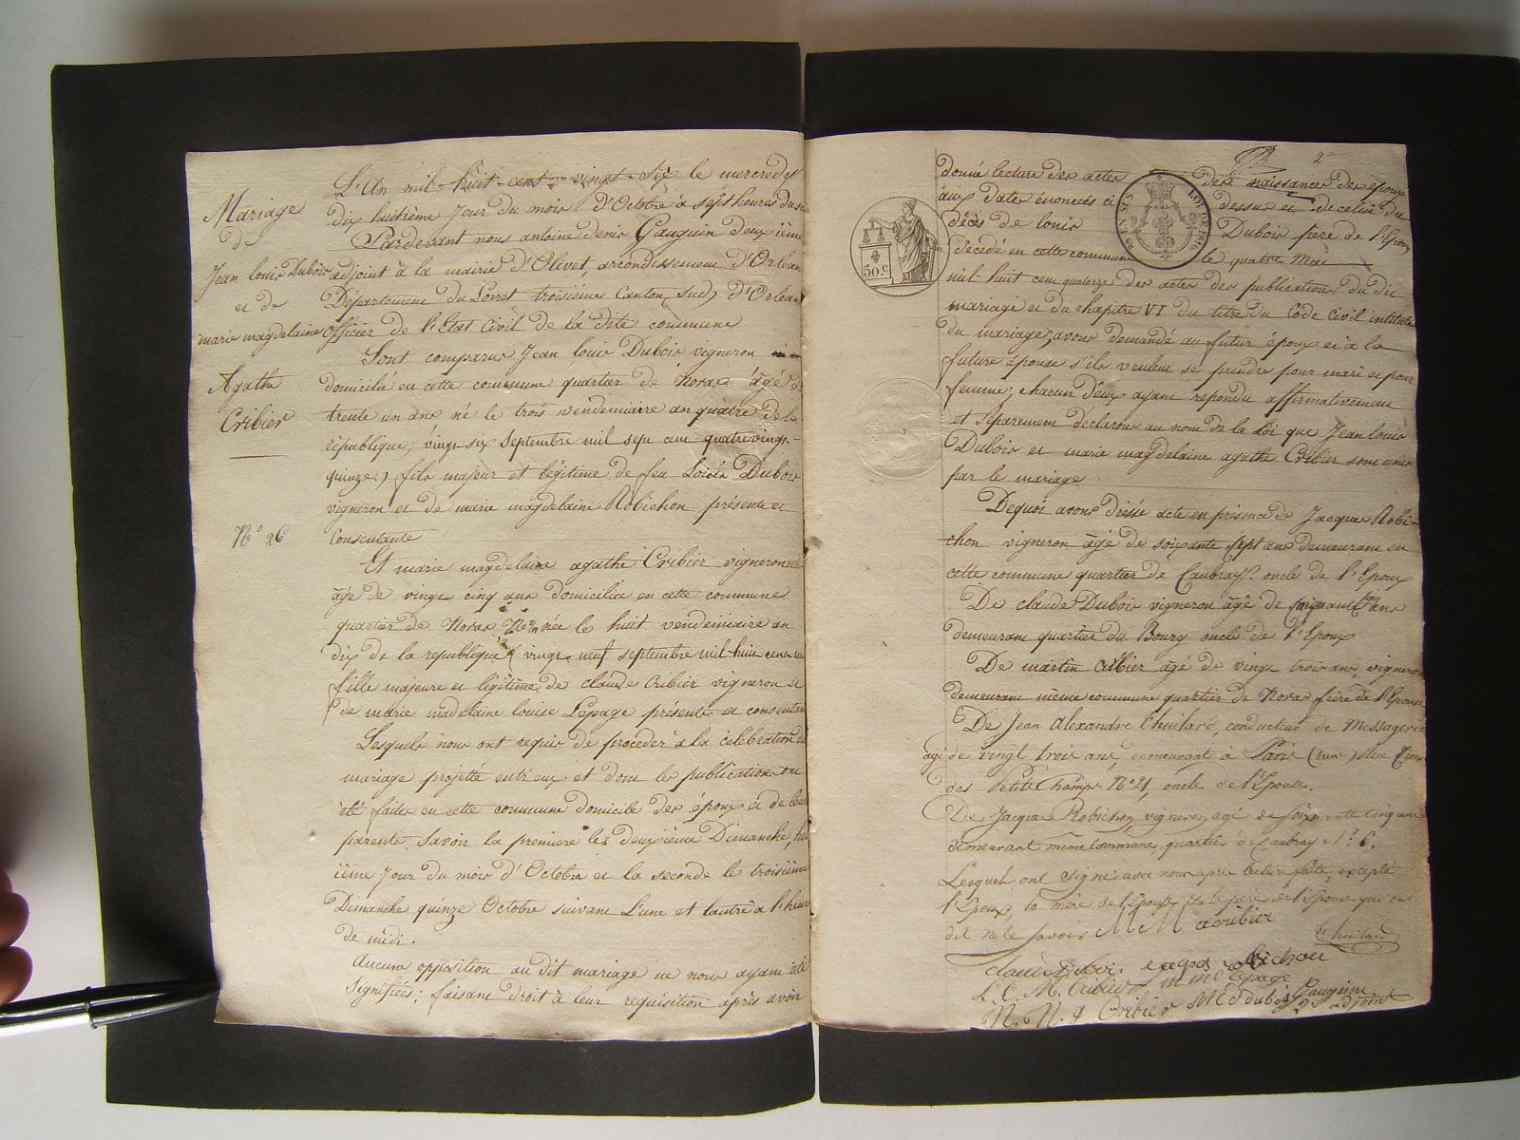 Mariage
de
Jean louis Dubois
et de
marie magdelaine
Agathe
Cribier
N.º 26
L'An mil huit cent vingt six le mercredy
dix huitième Jour du mois d'Octobre à sept heures du
Pardevant nous antoine denis Gauguin deuxième
adjoint à la mairie d'Olivet, arrondissement d'Orléans
Département du Loiret troisième Canton (sud) d'Orleans
officier de l'Etat Civil de la dite commune
Sont comparus Jean louis Dubois vigneron
domicilié en cette commune quartier de Noras âgé de
trente un ans né le trois vendemiaire an quatre de la
république, (vingt six Septembre mil sept cent quatrevingt-
quinze) fils majeur et légitime de feu Louis Dubois
vigneron et de marie magdelaine Robichon présente et
Consentante
Et marie magdelaine agathe Cribier vigneronne
âgé de vingt cinq ans domiciliée en cette commune
quartier de Noras née le huit vendemiaire an
dix de la republique (vingt neuf septembre mil huit cent un
fille majeure et légitime de claude Cribier vigneron et
de marie madelaine louise Lepage présents et consentants
Lesquels nous ont requis de procéder à la célébration du
mariage projetté entreux et dont les publications ont
été faites en cette commune domicile des époux et de leurs
parents. Savoir la premiere les deuxième Dimanche, huit
ième Jour du mois d'Octobre et la seconde le troisième
Dimanche quinze Octobre suivant L'une et lautre à l'heure
de midi.
Aucune opposition au dit mariage ne nous ayant été
Signifiées; faisant droit à leur requisition après avoir
2e
donné lecture des actes des naissances des époux
aux dates énoncés ci dessus et de celui du
décès de louis Dubois père de l'Epoux
décédé en cette commune le quatre Mai
mil huit cent quatorze des actes des publications du dit
mariage et du chapitre VI du titre du Code Civil intitulé
du mariage, avons demandé au futur époux et à la
future épouse s'ils veulent se prendre pour mari et pour
femme; chacun d'eux ayant repondu affirmativement
et séparement declarons au nom de la loi que Jean louis
Dubois et marie magdelaine agathe Cribier sont unis
par le mariage
Dequoi avons dréssé acte en présence de Jacques Robi-
chon vigneron âgé de soixante Sept ans demeurant en
cette commune quartier de Caubray oncle de l'Epoux
De claude Dubois vigneron âgé de ans
demeurant quartier du Bourg oncle de l'Epoux
De martin cribier agé de vingt trois ans, vigneron
demeurant même commune quartier de Noras frère de l'Epouse
De Jean Alexandre Thuilard, conducteur de Messageries
agé de vingt trois ans, demeurant à Paris (rue) Neuve
des Petits Champs N.º 21, oncle de l'Epouse.
De Jacques Robichon vigneron, agé de soixante cinq ans
demeurant même commune, quartier de Caubray N.º 6.
Lesquels ont signé avec nous après lecture faite, excepté
l'Epoux, la mère de l'époux et le père de l'Epouse qui ont
dit ne le savoir M M a cribier
thuilard
claude Duboi. robichon
L. C. M. Cribier M M L Lepage
Cribier M C dubois Gauguin
2e adjoint
50.C